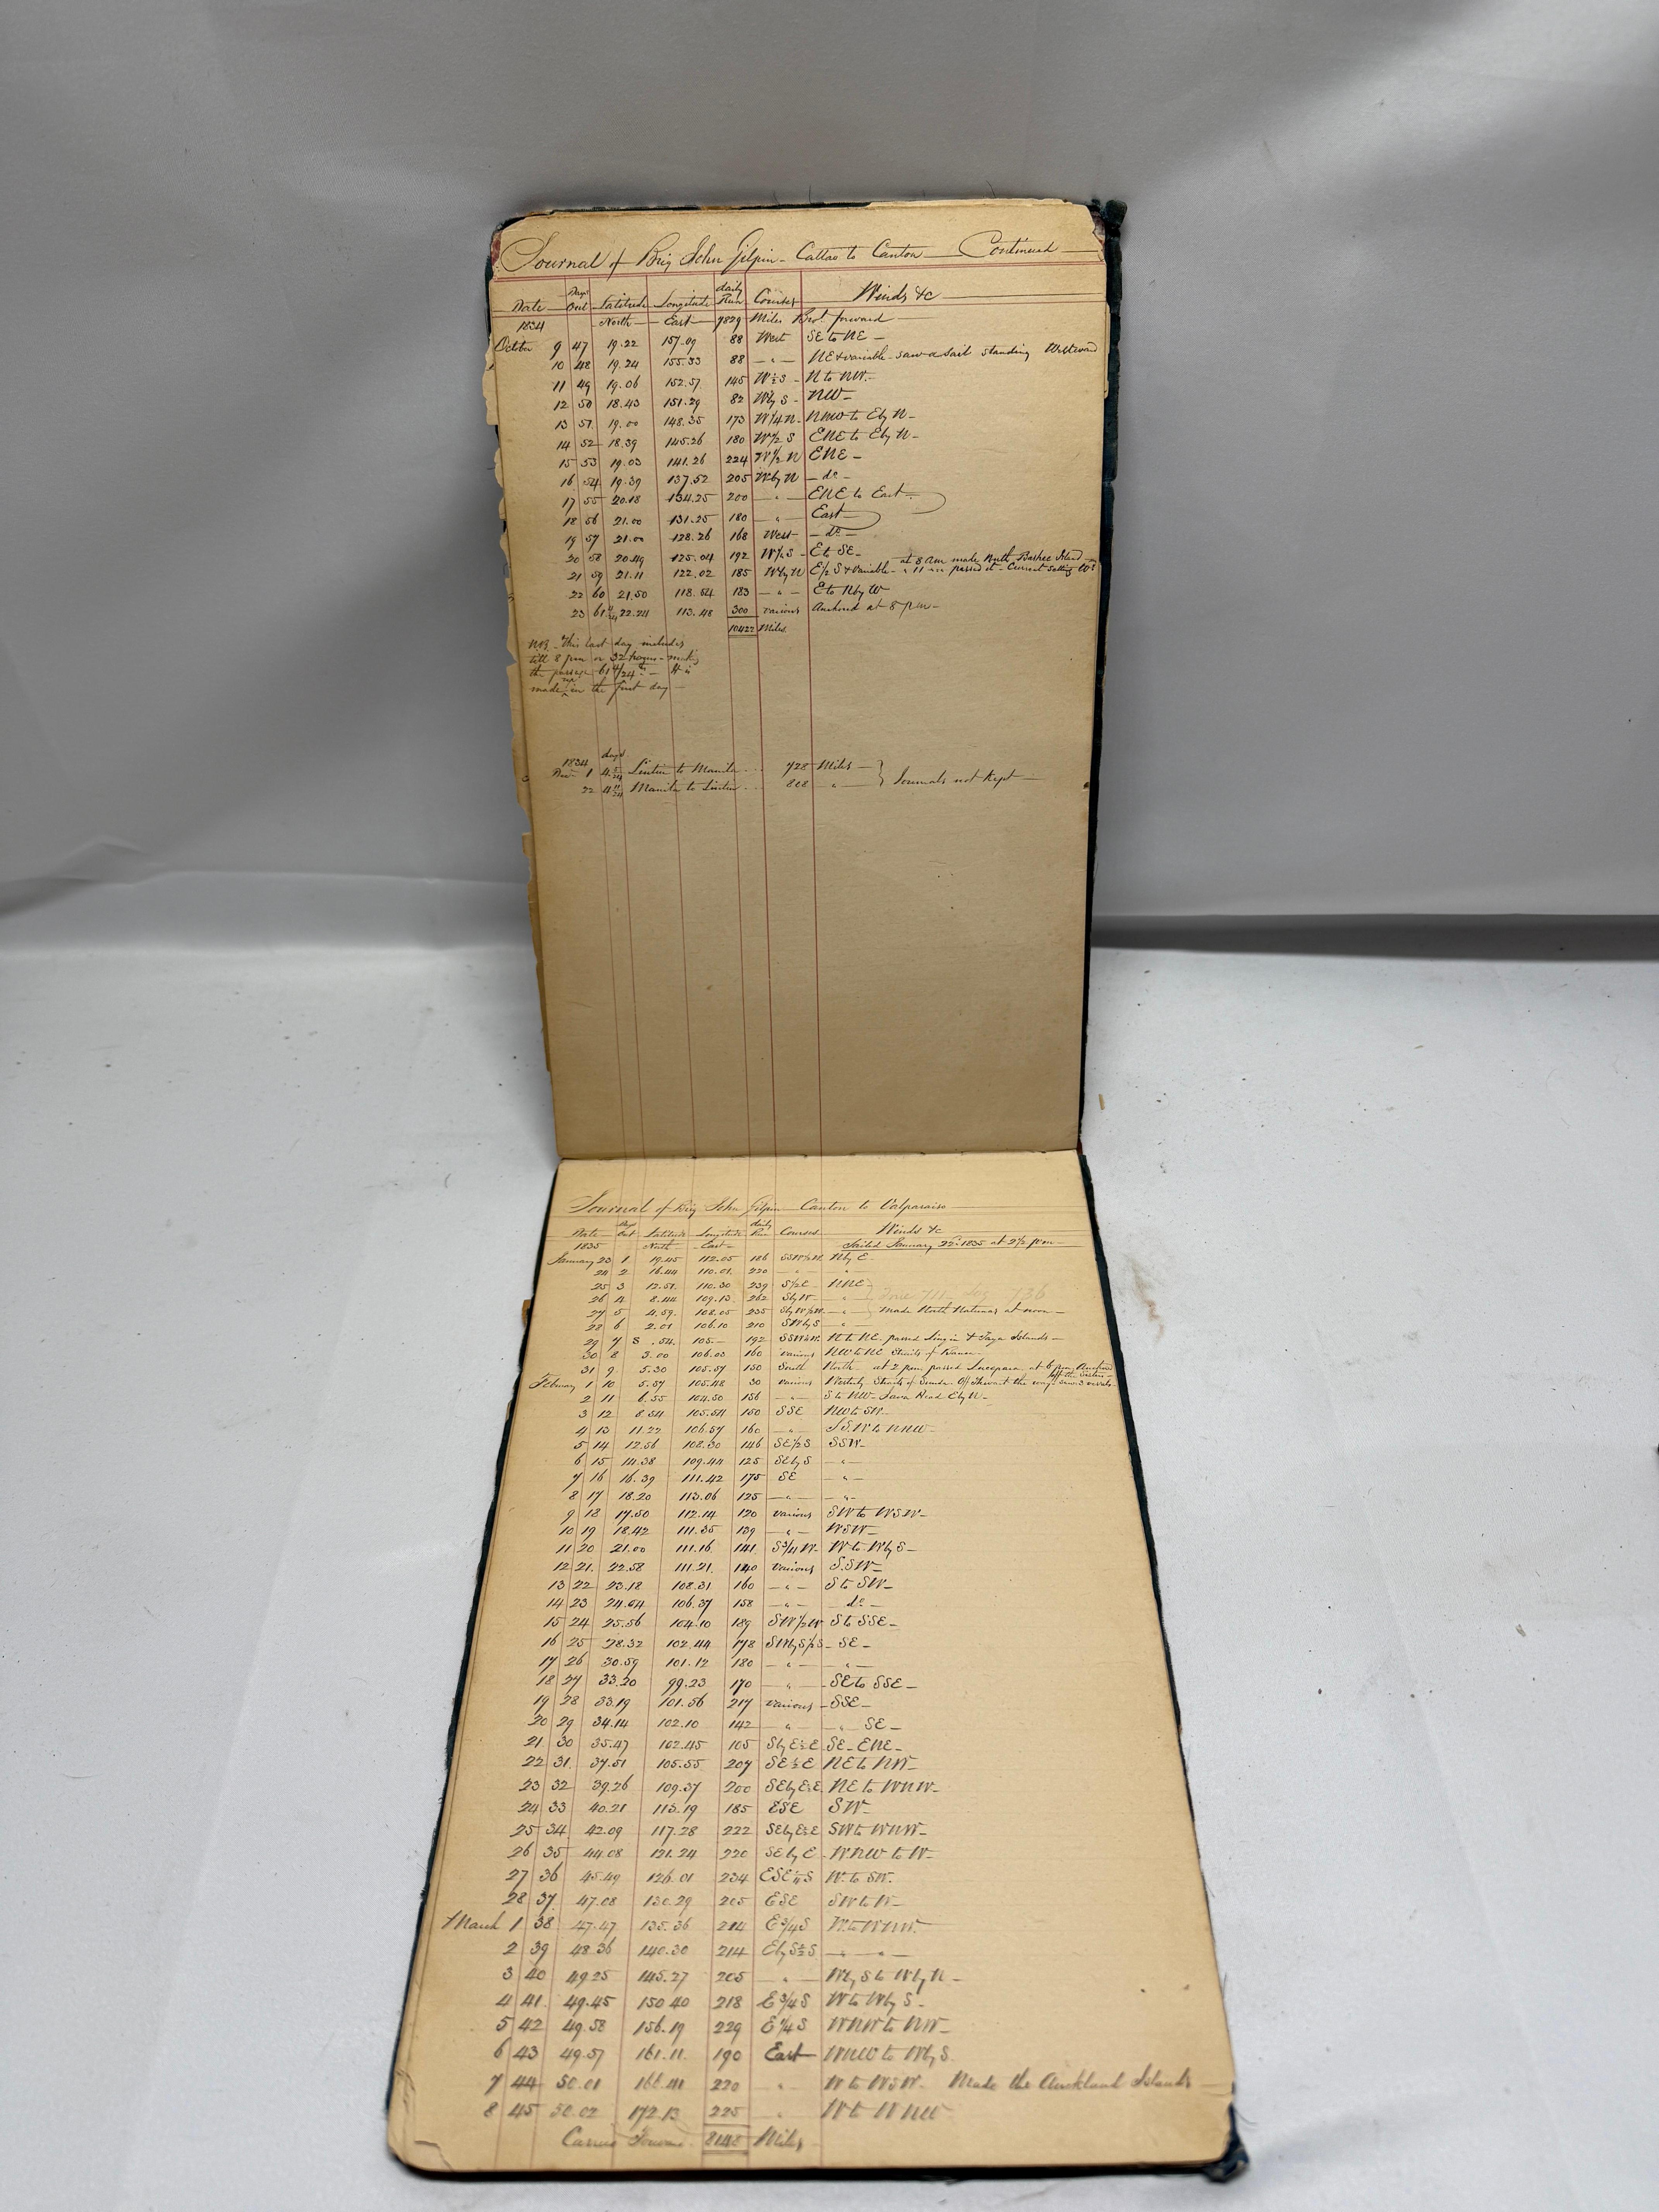 Journal of Brig John Gilpin - Callao to Canton - Continued
Date Days Out Latitude Longitude daily Run Courses Winds &c
1834 North East 7829 Miles Brot. forward
October 9 47 19.22 157.09 88 West SE to NE
10 48 19.24 155.33 88 - " - NE & variable - saw a sail standing Westward
11 49 19.06 152.57 145 W½S N to NW
12 50 18.43 151.29 82 WbyS NW
13 51 19.00 148.35 173 W¼N NNW to EbyN
14 52 18.39 145.26 180 W½S ENE to EbyN
15 53 19.03 141.26 224 W½N ENE
16 54 19.39 137.52 205 WbyN do
17 55 20.18 134.25 200 - " - ENE to East
18 56 21.00 131.25 180 - " - East
19 57 21.00 128.26 168 West do
20 58 20.49 125.04 192 W½S E to SE - at 8 am made North Bashee Island
21 59 21.11 122.02 185 WbyN E½S & variable - " 11 " passed it - Current setting
22 60 21.50 118.54 183 - " - E to NbyW
23 61 4/24 22.24 113.48 300 various Anchored at 8 pm
10422 Miles
NB. This last day includes
till 8 pm or 32 hours - making
the passage 61 4/24 It is
made up in the first day
1834 days
1 4 5/24 Lintin to Manila ... 728 Miles
22 4 Manila to Lintin ... 808 " } Journals not Kept
Journal of Brig John Gilpin Canton to Valparaiso
Date Days Out Latitude Longitude daily Run Courses Winds &c
1835 North East Sailed January 22d 1835 at 2½ pm
January 23 1 19.45 112.05 186 SSW½W NbyE
24 2 16.44 110.01 220 - " - "
25 3 12.51 110.30 239 S½E NNE
26 4 8.44 109.13 262 SbyW "
27 5 4.59 108.05 235 SbyW½W " made North Natunas at noon
28 6 2.01 106.10 210 SWbyS "
29 7 S .54 105.- 192 N to NE passed Lingin & Taya Islands
30 8 3.00 106.03 160 various NW to NE Straits of Banca
31 9 5.30 105.57 150 South North - at 2 pm passed Lucepara at 6 pm Anchored
off the Sisters
February 1 10 5.57 105.48 30 various Westerly Straits of Sunda. Off Thwart the way saw 3 vessels
2 11 6.55 104.50 156 - " - S to NW - Java Head EbyN
3 12 8.54 105.54 150 SSE NW to SW
4 13 11.22 106.57 160 - " - SSW to NNW
5 14 12.56 108.30 146 SE½S SSW
6 15 14.38 109.44 125 SEbyS - " -
7 16 16.39 111.42 175 SE - " -
8 17 18.20 113.06 125 - " - - " -
9 18 17.50 112.14 120 various SW to WSW
10 19 18.42 111.35 139 - " - WSW
11 20 21.00 111.16 141 S¾W W to WbyS
12 21 22.58 111.21 140 various SSW
13 22 23.18 108.31 160 - " - S to SW
14 23 24.04 106.37 158 - " - do
15 24 25.56 104.10 189 SW½W S to SSE
16 25 28.32 102.44 178 SWbyS½S SE
17 26 30.59 101.12 180 - " - "
18 27 33.20 99.23 170 - " - SE to SSE
19 28 33.19 101.56 217 various SSE
20 29 34.14 102.10 142 - " - " SE
21 30 35.47 102.45 105 SbyE½E SE - ENE
22 31 37.51 105.55 207 SE½E NE to NW
23 32 39.26 109.37 200 SEbyE½E NE to WNW
24 33 40.21 113.19 185 ESE SW
25 34 42.09 117.28 222 SEbyE½E SW to WNW
26 35 44.08 121.24 220 SEbyE WNW to W
27 36 45.49 126.01 234 ESE¼S W to SW
28 37 47.08 130.29 205 ESE SW to W
March 1 38 47.47 135.36 214 E¾S W to WNW
2 39 48.36 140.30 214 EbyS½S - " -
3 40 49.25 145.27 205 - " - WbyS to WbyN
4 41 49.45 150.40 218 E¾S W to WbyS
5 42 49.58 156.19 229 E¼S WNW to NW
6 43 49.57 161.11 190 East WNW to WbyS
7 44 50.01 166.41 220 " W to WSW Made the Auckland Islands
8 45 50.02 172.13 225 " W to WNW
Carried Forward 8148 Miles